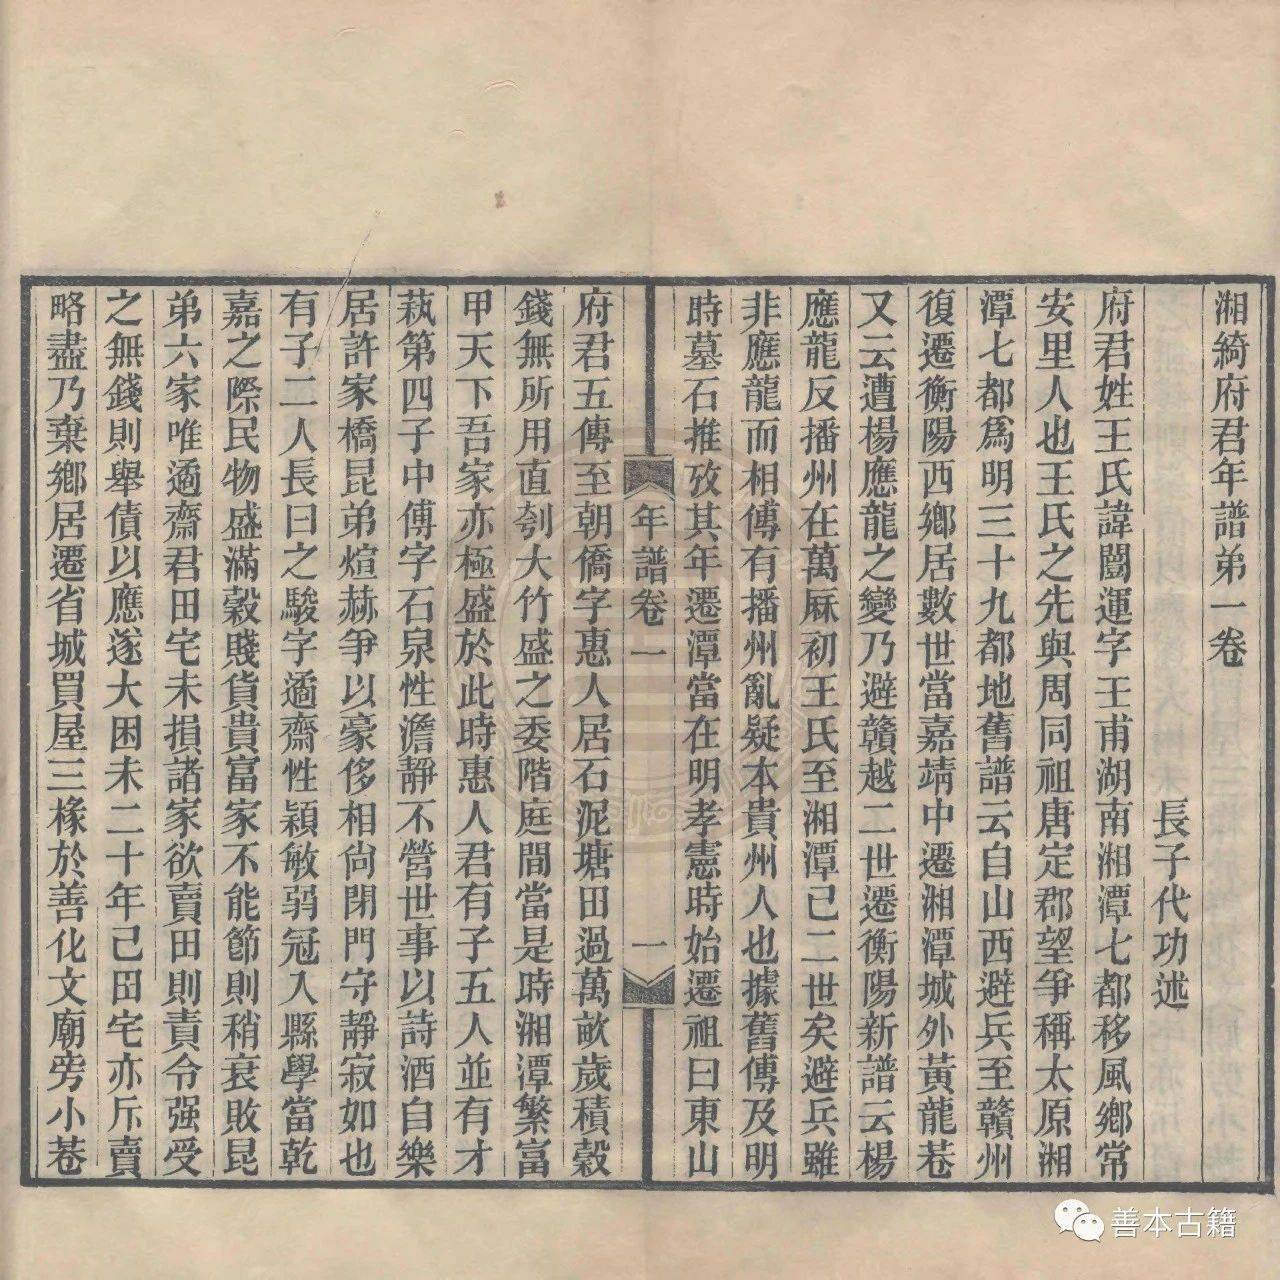 湘綺府君年譜弟一卷
長子代功述
府君姓王氏諱闓運字壬甫湖南湘潭七都移風鄉常
安里人也王氏之先與周同祖唐定郡望爭稱太原湘
潭七都爲明三十九都地舊譜云自山西避兵至贛州
復遷衡陽西鄉居數世當嘉靖中遷湘潭城外黃龍巷
又云遭楊應龍之變乃避贛越二世遷衡陽新譜云楊
應龍反播州在萬厤初王氏至湘潭已二世矣避兵雖
非應龍而相傳有播州亂疑本貴州人也據舊傳及明
時墓石推攷其年遷潭當在明孝憲時始遷祖曰東山
年譜卷一
一
府君五傳至朝僑字惠人居石泥塘田過萬畝歲積穀
錢無所用直刳大竹盛之委階庭間當是時湘潭繁富
甲天下吾家亦極盛於此時惠人君有子五人並有才
執第四子中傅字石泉性澹靜不營世事以詩酒自樂
居許家橋昆弟煊赫爭以豪侈相尙閉門守靜寂如也
有子二人長曰之駿字遹齋性穎敏弱冠入縣學當乾
嘉之際民物盛滿穀賤貨貴富家不能節則稍衰敗昆
弟六家唯遹齋君田宅未損諸家欲賣田則責令强受
之無錢則舉債以應遂大困未二十年己田宅亦斥賣
略盡乃棄鄉居遷省城買屋三椽於善化文廟旁小巷
善本古籍